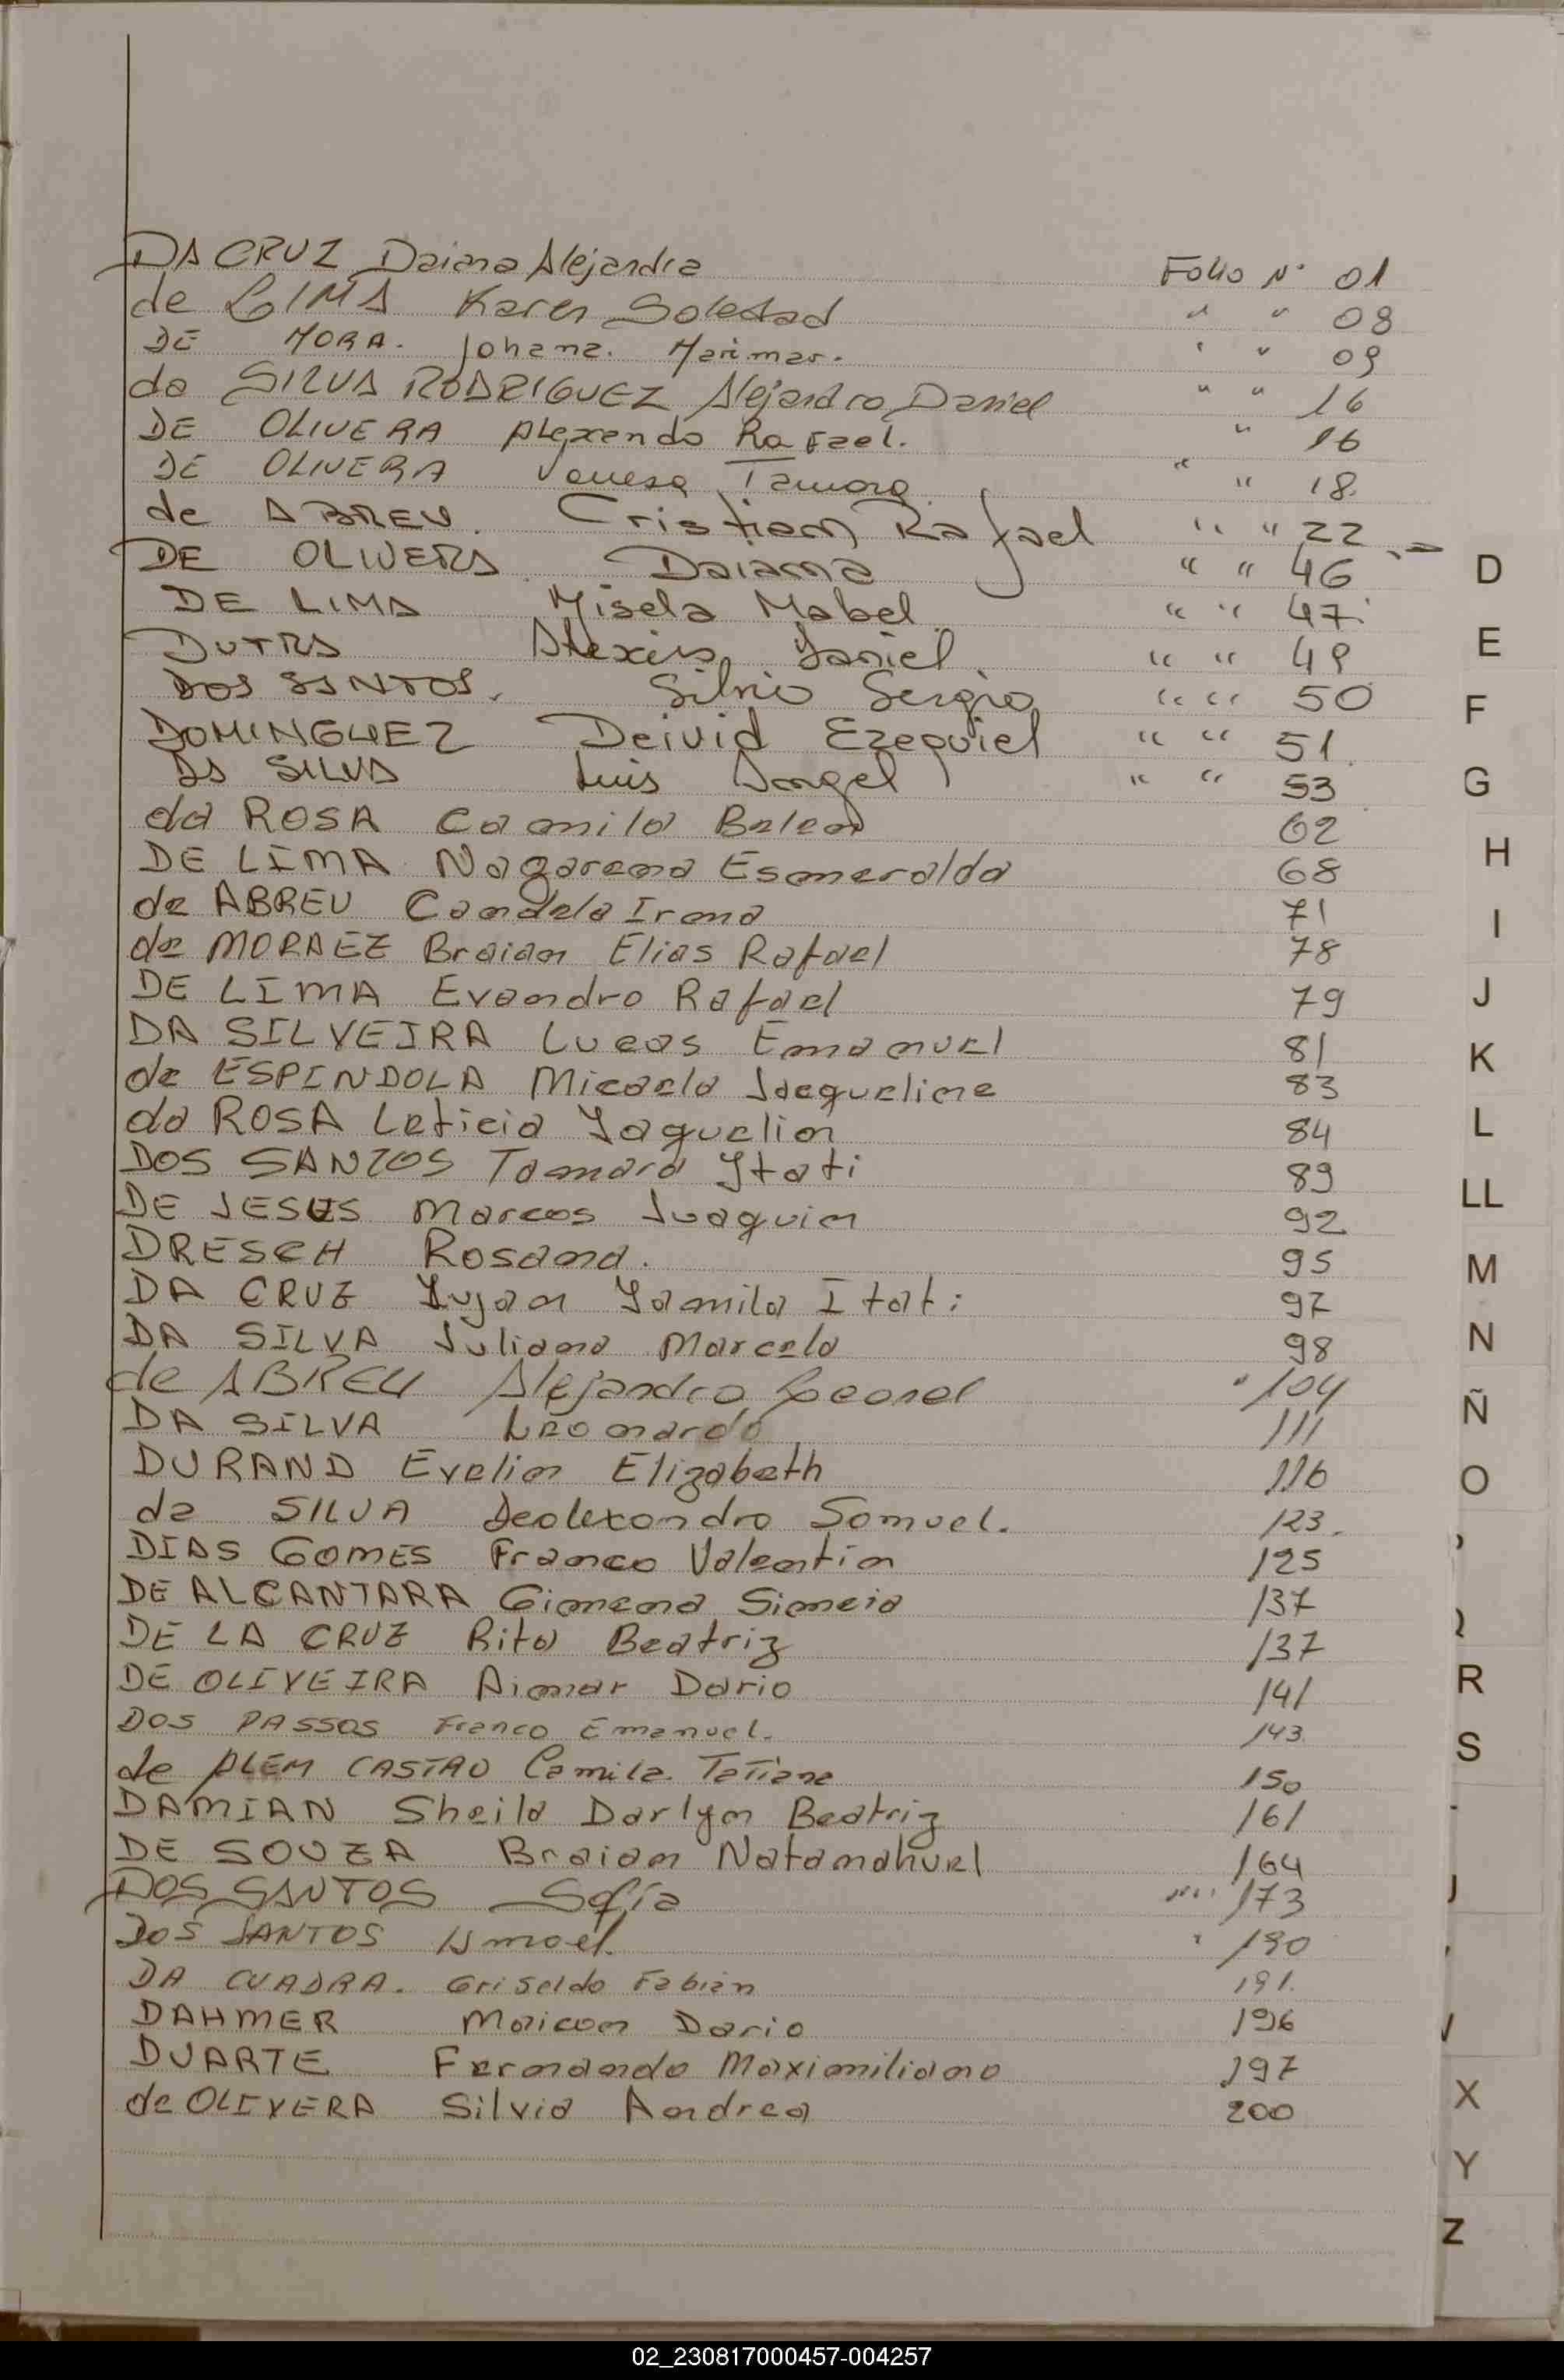 DA CRUZ Daiana Alejandra Folio Nº 01
de LIMA Karen Soledad " " 08
DE MORA. Johana. Marimar. " " 09
da SILVA RODRIGUEZ Alejandro Daniel " " 16
DE OLIVERA Alexendo Rafael. " 16
DE OLIVERA Vanesa Tamara " " 18.
de ABREU. Cristian Rafael " " 22
DE OLIVERA Daiana " " 46
DE LIMA Misela Mabel " " 47.
DUTRA Alexis Daniel. " " 49
DOS SANTOS. Silvio Sergio " " 50
DOMINGUEZ Deivid Ezequiel " " 51.
DA SILVA Luis Angel " " 53
da ROSA Camila Belen 62
DE LIMA Nazarena Esmeralda 68
de ABREU Candela Irena 71
de MORAEZ Braian Elias Rafael 78
DE LIMA Evandro Rafael 79
DA SILVEIRA Lucas Emanuel 81
de ESPINDOLA Micaela Jacqueline 83
da ROSA Leticia Yaquelin 84
DOS SANTOS Tamara Itati 89
DE JESUS Marcos Juaquin 92
DRESCH Rosana. 95
DA CRUZ Lujan Yamila Itati 97
DA SILVA Juliana Marcela 98
de ABREU Alejandro Leonel " 104
DA SILVA Leonardo 111
DURAND Evelin Elizabeth 116
da SILVA Dealexandro Samuel. 123.
DIAS GOMES Franco Valentin 125
DE ALCANTARA Gimena Simeia 137
DE LA CRUZ Rita Beatriz 137
DE OLIVEIRA Aimar Dario 141
DOS PASSOS Franco Emanuel. 143.
de ALEM CASTRO Camila. Tatiana 150
DAMIAN Sheila Darlyn Beatriz 161
DE SOUZA Braian Natanahuel 164
DOS SANTOS Sofía 173
DOS SANTOS Ismael. " 190
DA CUADRA. Griseldo Fabián 191.
DAHMER Maicon Dario 196
DUARTE Fernando Maximiliano 197
de OLIVERA Silvia Andrea 200
D
E
F
G
H
I
J
K
L
LL
M
N
Ñ
O
R
S
X
Y
Z
02_230817000457-004257